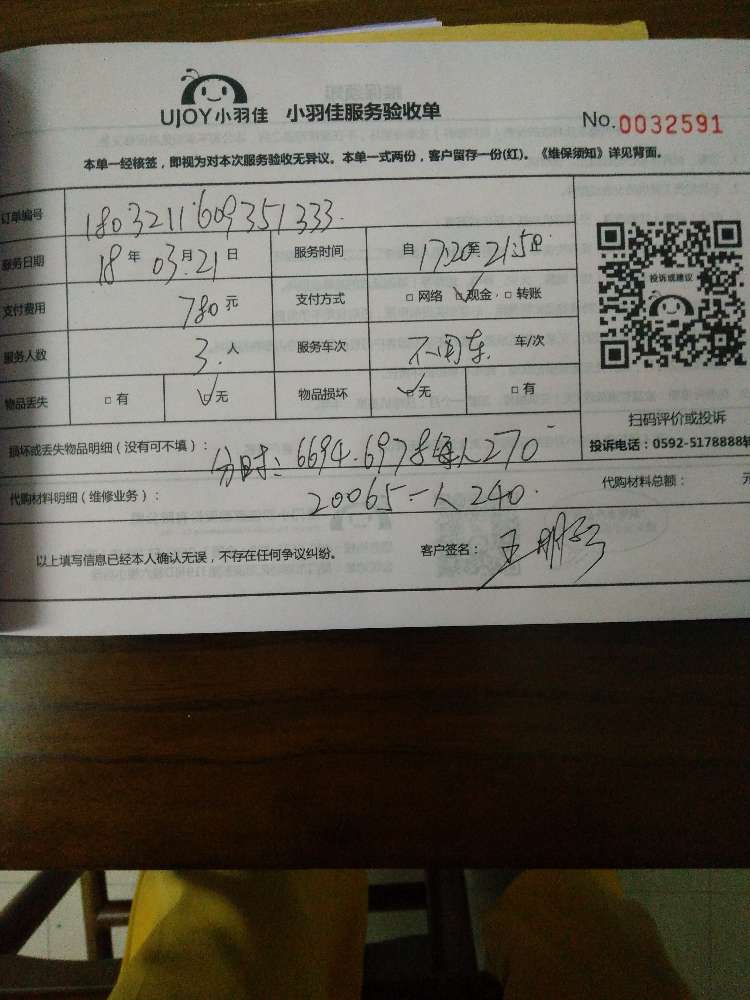 UJOY小羽佳 小羽佳服务验收单
No.0032591
本单一经核签，即视为对本次服务验收无异议。本单一式两份，客户留存一份(红)。《维保须知》详见背面。
订单编号 1803211609351333
服务日期 18年03月21日 服务时间 自17:20至21:50止
支付费用 780元 支付方式 □网络 ☑现金 □转账
服务人数 3人 服务车次 不用车 车/次
物品丢失 □有 ☑无 物品损坏 ☑无 □有
投诉或建议
扫码评价或投诉
投诉电话：0592-5178888转
损坏或丢失物品明细（没有可不填）： 分时：6694.697 每人270
代购材料明细（维修业务）： 20065一人240. 代购材料总额： 元
以上填写信息已经本人确认无误，不存在任何争议纠纷。 客户签名：